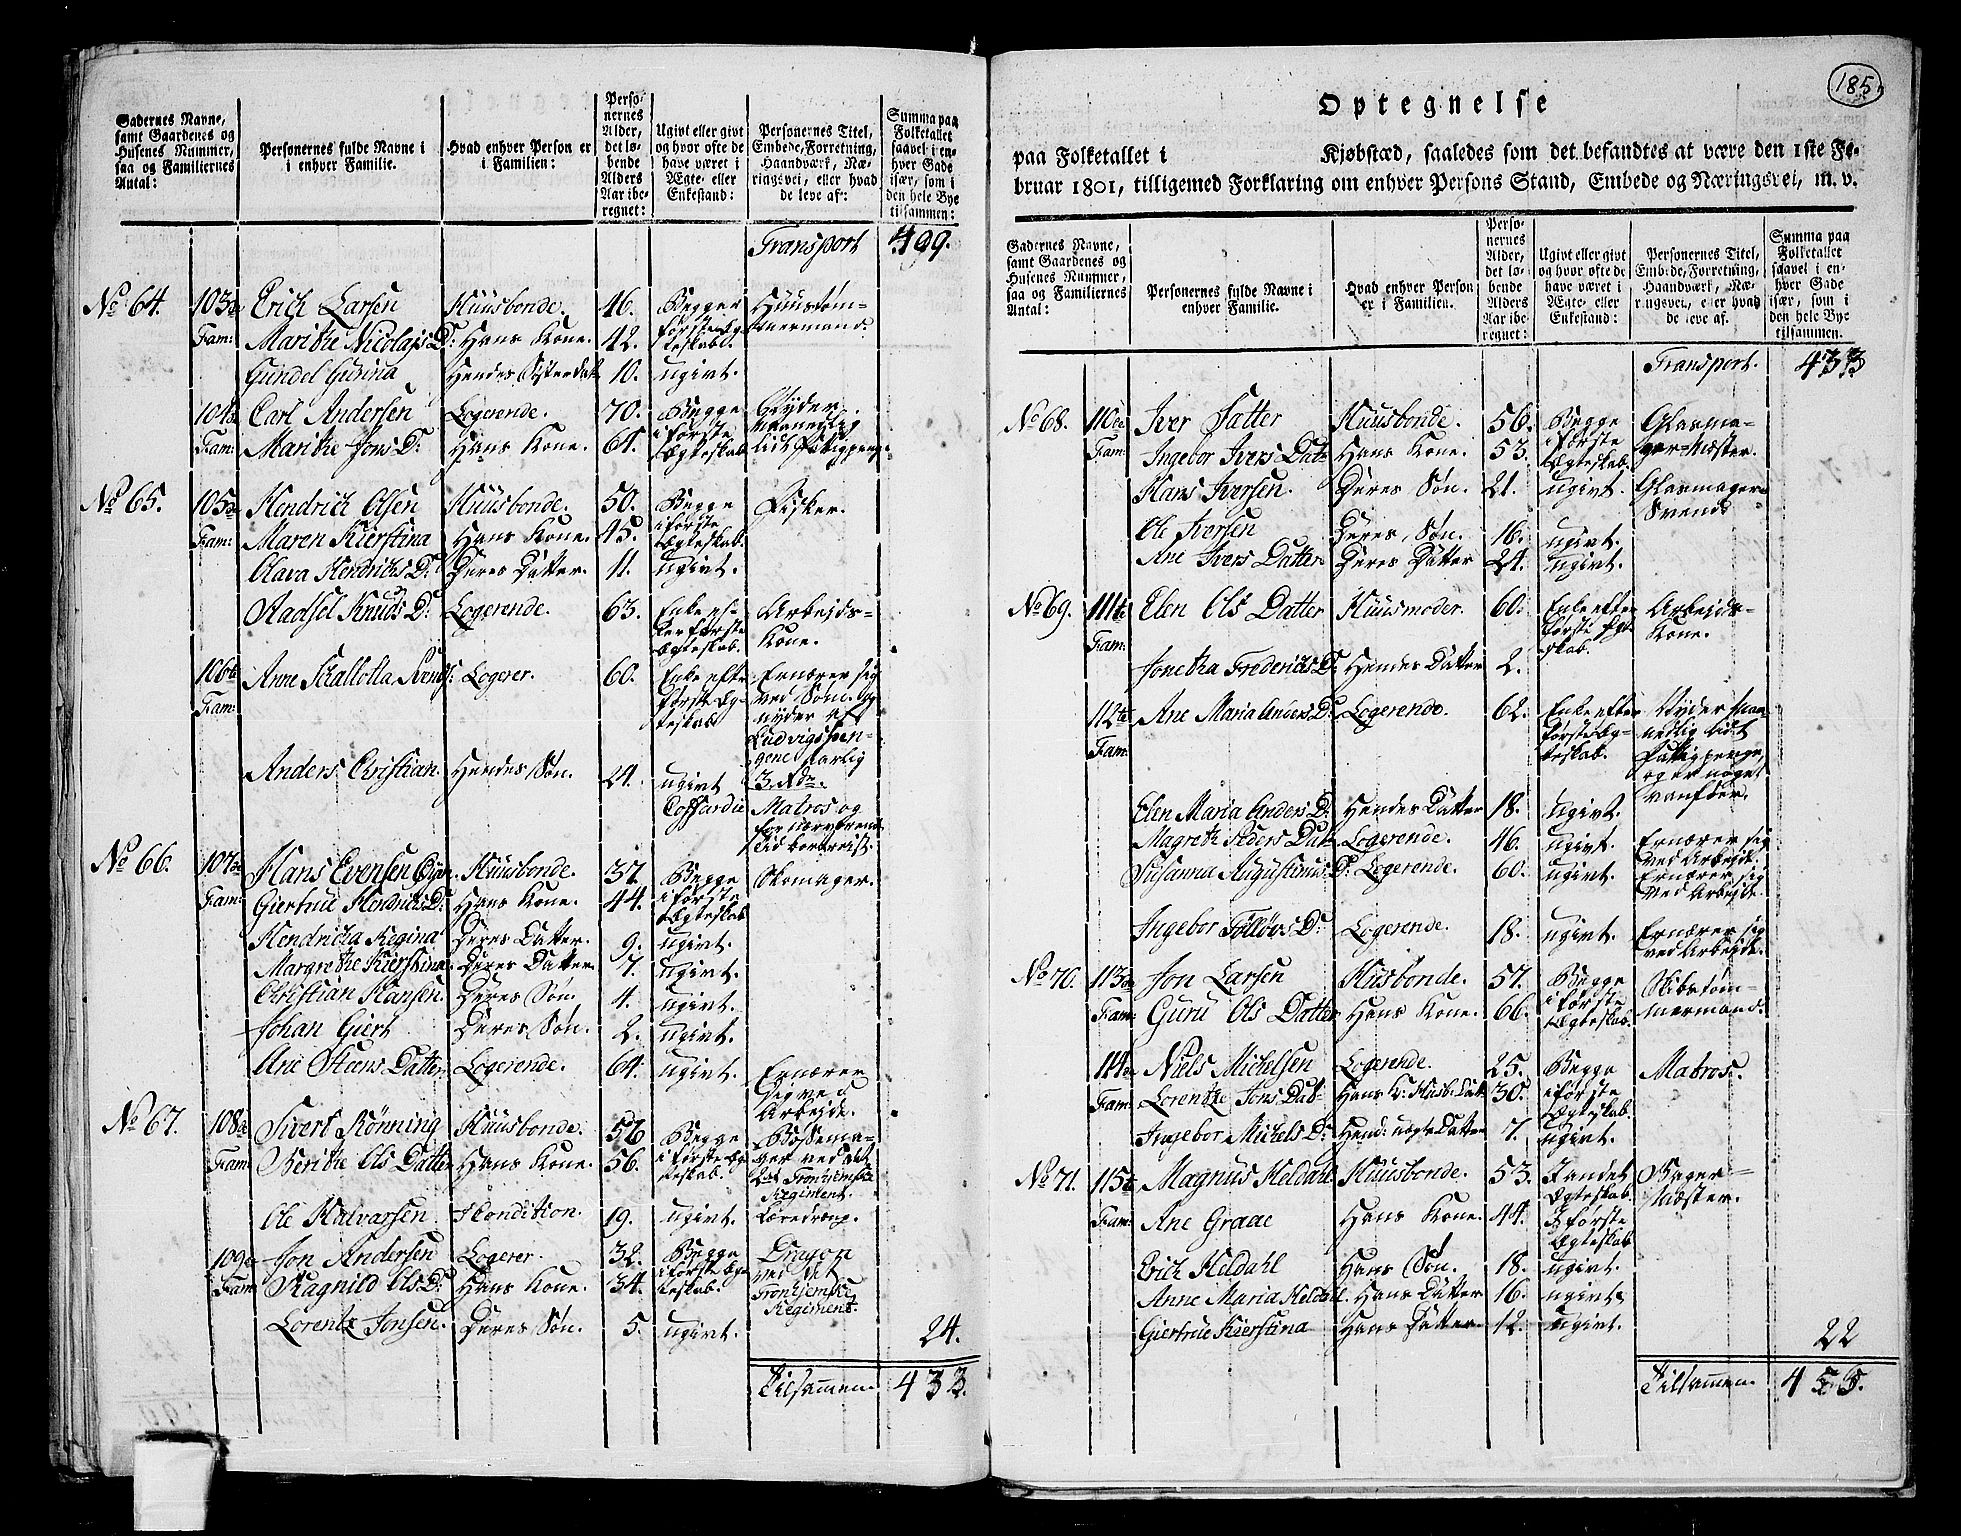 Gadernes Navne, samt Gaardenes og Husenes Nummer, saa og Familiernes Antal:
Personernes fulde Navne i enhver Familie.
Hvad enhver Person er i Familien:
Personernes Alder, det løbende Alders Aar iberegnet:
Ugivt eller givt og hvor ofte de have været i Ægte- eller Enkestand:
Personernes Titel, Embede, Forretning, Haandværk, Næringsvei, eller hvad de leve af:
Summa paa Folketallet saavel i enhver Gade især, som i den hele Bye tilsammen:
Transport 499.
No 64. 103de Fam: Erich Larsen Huusbonde. 46. Begge første Egteskab. Huustømmermand.
Marithe Nicolajs D: Hans Kone. 42.
Gundel Gunna Hendes Søsterdat 10. ugivt.
104de Fam: Carl Andersen Logerende. 70. Begge i første Egteskab Nyder maanedlig lidt Fattigpenge.
Marithe Jons D: Hans Kone. 64.
No 65. 105te Fam: Hendrich Olsen Huusbonde. 50. Begge i første Egteskab. Fisker.
Maren Kierstina Hans Kone. 45.
Clara Hendrichs D: Deres Datter. 11. ugivt.
Aadsel Knuds D: Logerende. 63. Enke efter første Egteskab. Arbejds-Kone.
106te Fam: Anne Schallotta Svends: Logerer. 60. Enke efter første Egteskab Ernærer sig ved Søm. og nyder af Ludvigspengene aarlig 3 Rde.
Anders Christian Hendes Søn. 24. ugivt Coffardie Matros og for nærværende Tid bortreist.
No 66. 107de Fam: Hans Evensen Huusbonde. 37. Begge i første Egteskab Skomager.
Giertrue Hendrichs D: Hans Kone. 44.
Hendricha Regina Deres Datter. 9. ugivt.
Margrethe Kierstina Deres Datter. 7. ugivt.
Christian Hansen. Deres Søn 4. ugivt.
Johan Giert Deres Søn. 2. ugivt.
Ane Hans Datter Logerende. 64. ugivt. Ernærer sig ved Arbejde.
No 67. 108de Fam: Sivert Rönning Huusbonde. 56 Begge i første Egteskab. Bøssemager ved det 2det Tronhjemske Regiment.
Berithe Ols Datter Hans Kone. 56.
Ole Halvarsen Kondition. 19. ugivt. Læredreng.
109de Fam: Jon Andersen Logerer. 32. Begge i første Egteskab. Dragon ved det Tronhjemske Regiment
Ragnild Ols D: Hans Kone. 34.
Lorentz Jonsen. Deres Søn. 5. ugivt.
24.
Tilsammen 433.
185
Optegnelse
paa Folketallet i Kjøbstæd, saaledes som det befandtes at være den 1ste Februar 1801, tilligemed Forklaring om enhver Persons Stand, Embede og Næringsvei, m. v.
Gadernes Navne, samt Gaardenes og Husenes Nummer, saa og Familiernes Antal:
Personernes fulde Navne i enhver Familie.
Hvad enhver Person er i Familien.
Personernes Alder, det løbende Alders Aar iberegnet:
Ugivt eller givt og hvor ofte de have været i Ægte- eller Enkestand:
Personernes Titel, Embede, Forretning, Haandværk, Næringsvei, eller hvad de leve af.
Summa paa Folketallet saavel i enhver Gade især, som i den hele Bye tilsammen.
Transport. 433
No 68. 110de Fam: Iver Satter Huusbonde. 56. Begge i første Egteskab. Glasmager-Mæster.
Ingebor Ivers Dat: Hans Kone. 53.
Hans Iversen. Deres Søn. 21. ugivt. Glasmager Svend.
Ole Iversen Deres Søn. 16. ugivt.
Ane Ivers Datter Deres Datter 24. ugivt.
No 69. 111te Fam: Elen Ols Datter Huusmoder. 60. Enke efter første Egteskab. Arbeids-Kone.
Jonetha Frederichs D: Hendes Datter 2.
112te Fam: Ane Maria Anders D: Logerende. 62. Enke efter første Egteskab. Nyder maanedlig lidt Fattigpenge, og er noget vanfør.
Elen Maria Anders D: Hendes Datter 18. ugivt.
Magreth Peders Dat: Logerende. 46. ugivt. Ernærer sig ved Arbejde.
Susanna Augustinus D: Logerende. 60. ugivt. Ernærer sig ved Arbejde.
Ingebor Tölløvs D: Logerende. 18. ugivt. Ernærer sig ved Arbejde.
No 70. 113de Fam: Jon Larsen Husbonde. 57. Begge i første Egteskab. Skibstømmermand.
Guru Ols Datter Hans Kone. 66.
114de Fam: Niels Michelsen Logerende. 25. Begge i første Egteskab. Matros.
Lorentze Jons Dat: Hans K: Husb: Dat: 30.
Ingebor Michels D: Hend: uægte Datter 7. ugivt.
No 71. 115te Fam: Magnus Heldahl Huusbonde. 53. I andet Egteskab. Bager-Mæster.
Ane Graae Hans Kone. 44. I første Egteskab
Erich Heldahl Hans Søn. 18. ugivt.
Anne Maria Heldahl. Hans Datter 16. ugivt.
Giertrue Kierstina Hans Datter. 12. ugivt.
22
Tilsammen. 455.